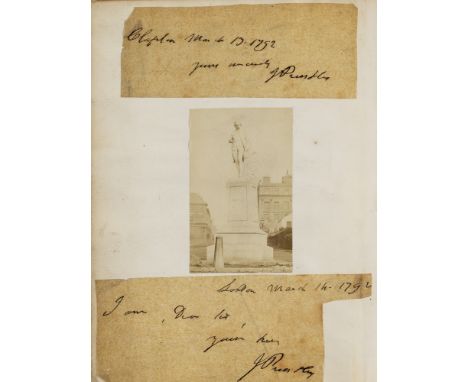 Clapton March 13. 1792
yours sincerely
J Priestley
London March 14. 1792
I am, Dear Sir,
yours
J Priestley